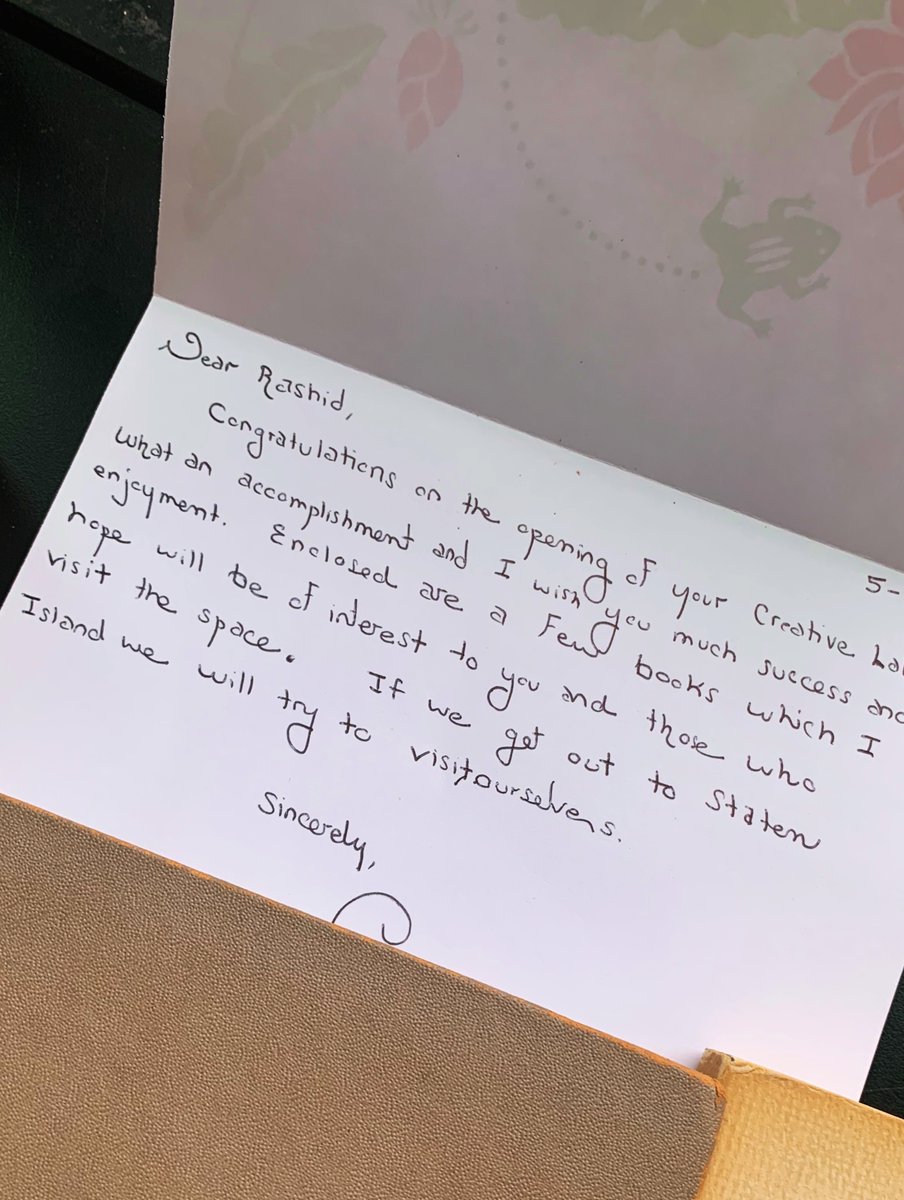 5-
Dear Rashid,
Congratulations on the opening of your Creative La
What an accomplishment and I wish you much success and
enjoyment. Enclosed are a few books which I
hope will be of interest to you and those who
visit the space. If we get out to Staten
Island we will try to visit ourselves.
Sincerely,